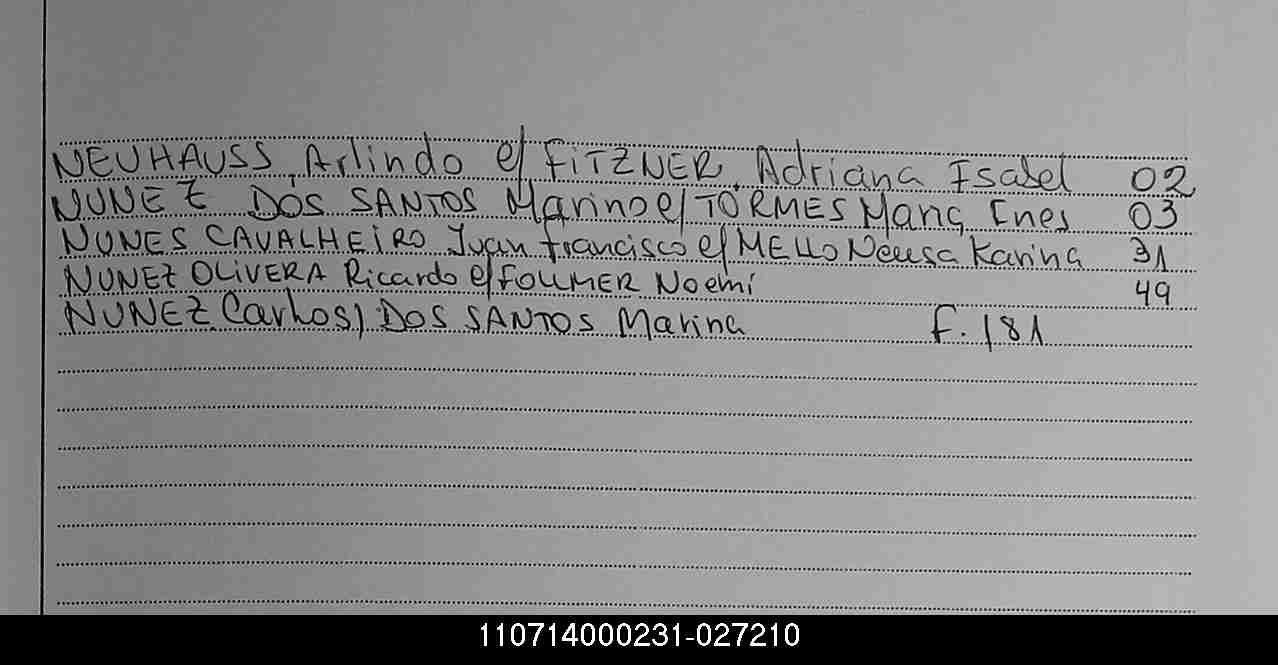 NEUHAUSS, Arlindo c/ FITZNER, Adriana Isabel 02
NUNEZ DOS SANTOS Marino c/ TORMES Maria Ines 03
NUNES CAVALHEIRO Juan francisco c/ MELLO Neusa Karina 31
NUNEZ OLIVERA Ricardo c/ FOLLMER Noemí 49
NUNEZ Carlos / DOS SANTOS Marina F. 181
110714000231-027210